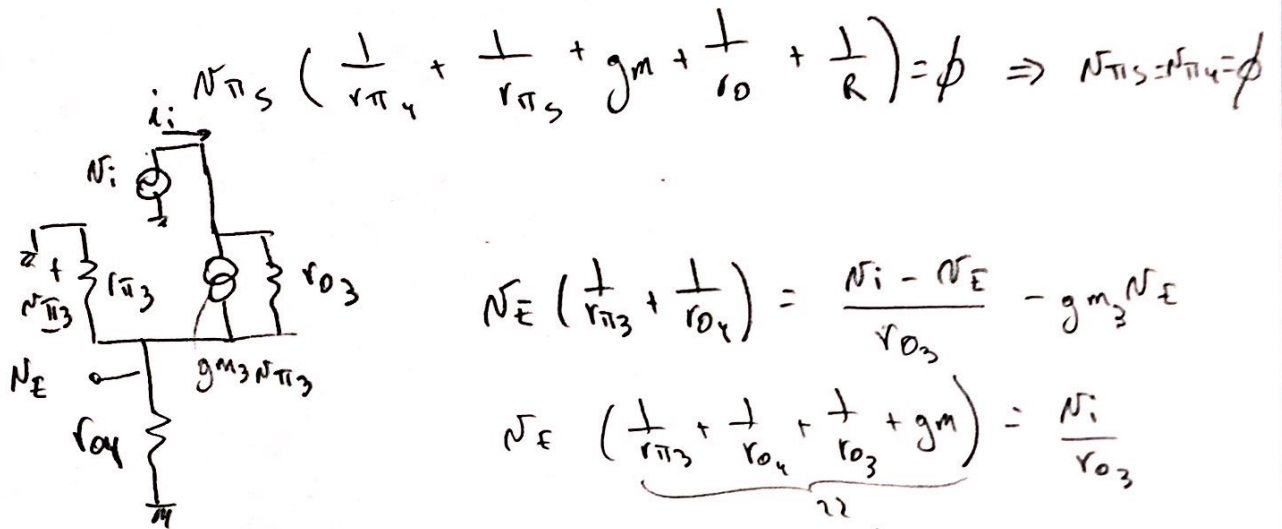 Nπ5 ( 1/rπ4 + 1/rπ5 + gm + 1/ro + 1/R ) = ϕ ⇒ Nπ5 = Nπ4 = ϕ
ii
Ni
+
Nπ3
rπ3
ro3
NE
gm3 Nπ3
ro4
NE ( 1/rπ3 + 1/ro4 ) = (Ni - NE)/ro3 - gm3 NE
NE ( 1/rπ3 + 1/ro4 + 1/ro3 + gm ) = Ni/ro3